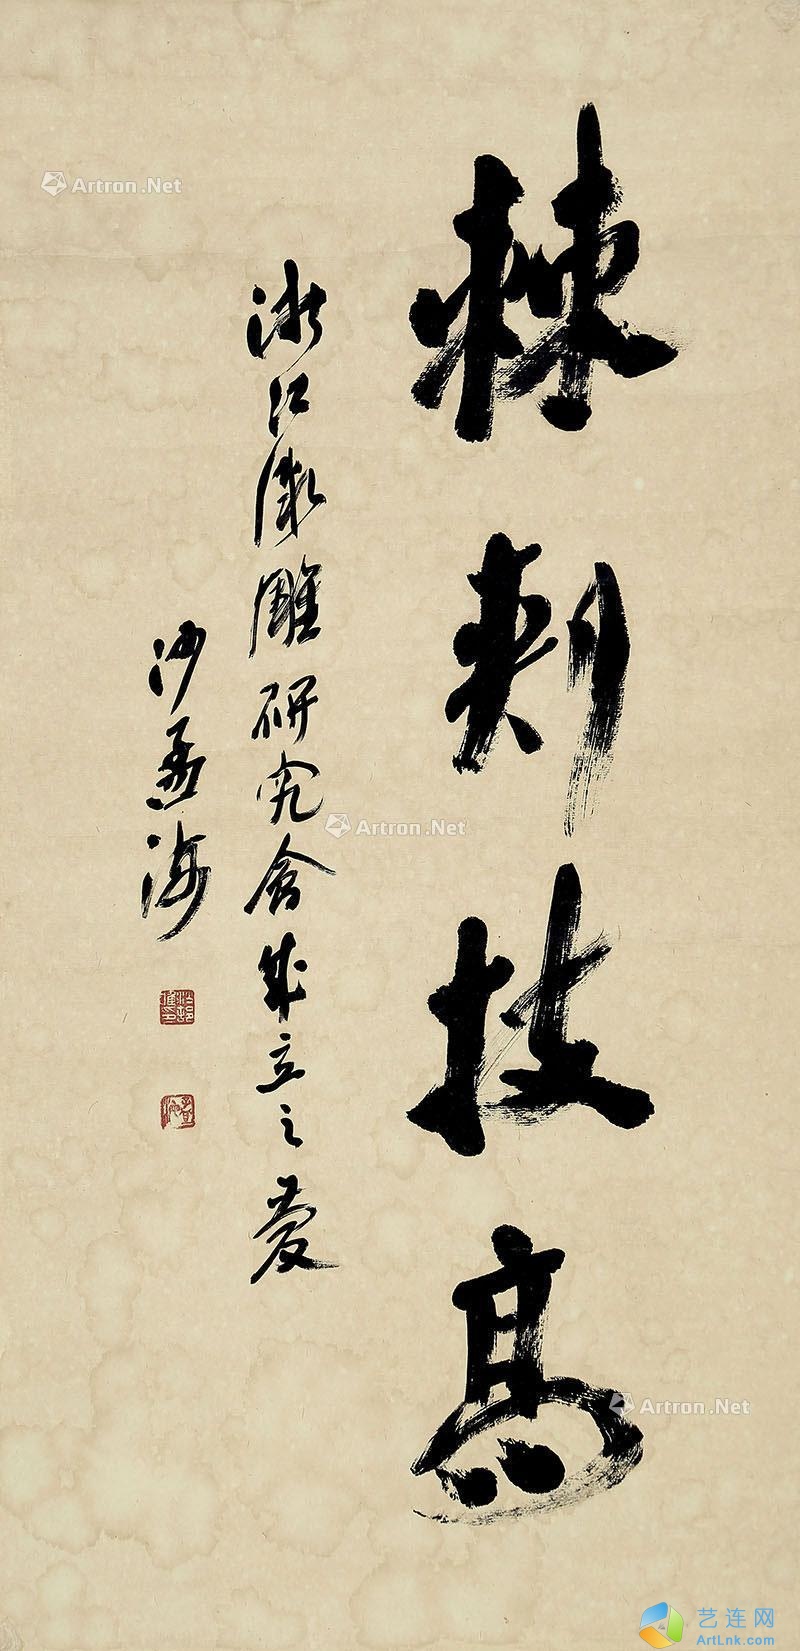 棘刺技高
浙江微雕研究会成立之庆
沙孟海
Artron.Net
Artron.Net
Artron.Net
艺连网
ArtLnk.com